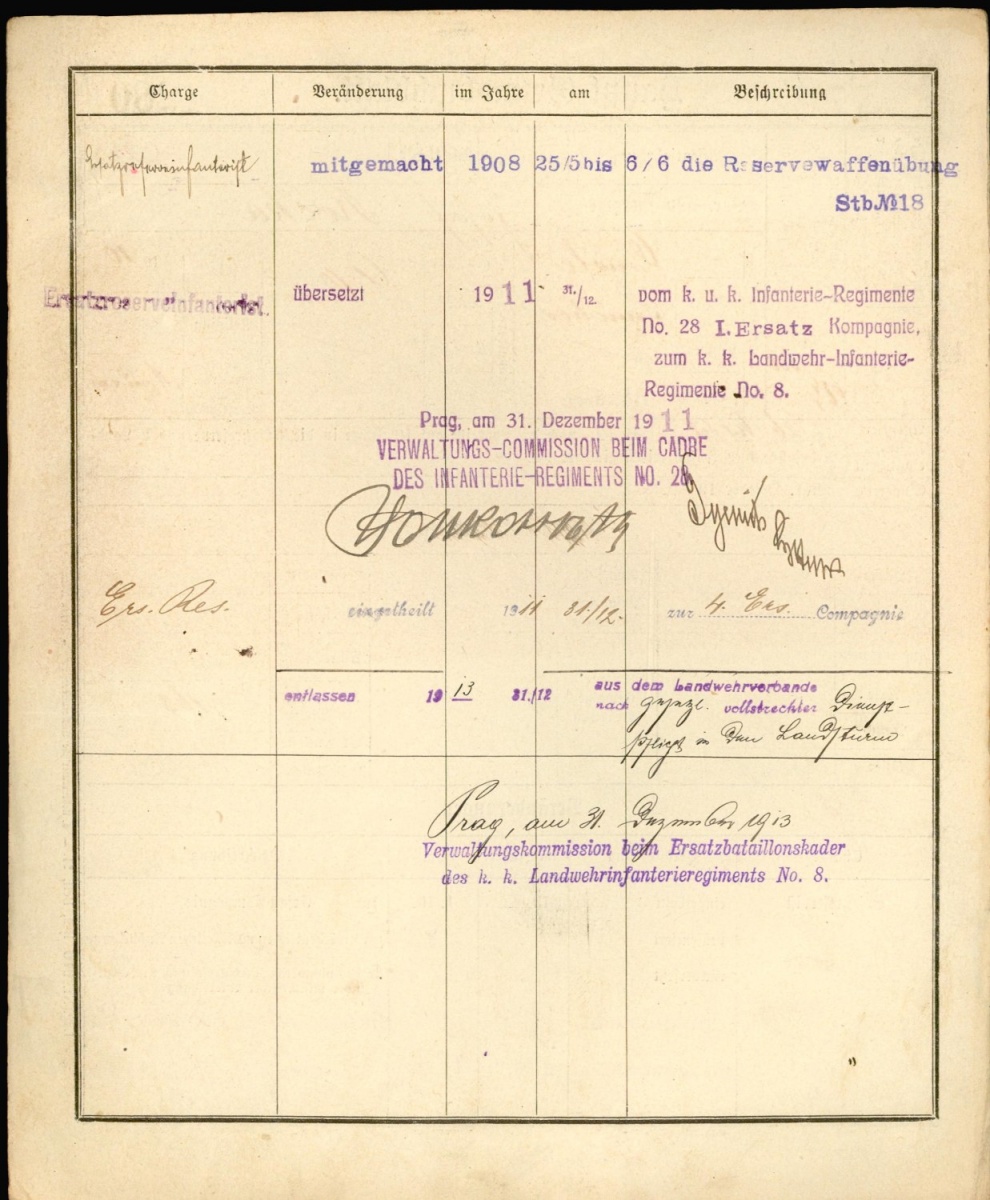 Charge Veränderung im Jahre am Beschreibung
Ersatzreserveinfanterist mitgemacht 1908 25/5 bis 6/6 die Reservewaffenübung
Stb№18
Ersatzreserveinfanterist. übersetzt 1911 31./12. vom k. u. k. Infanterie-Regimente
No. 28 I. Ersatz Kompagnie,
zum k. k. Landwehr-Infanterie-
Regimente No. 8.
Prag, am 31. Dezember 1911
VERWALTUNGS-COMMISSION BEIM CADRE
DES INFANTERIE-REGIMENTS NO. 28
Ers. Res. eingetheilt 1911 31./12. zur 4. Ers. Compagnie
entlassen 1913 31./12 aus dem Landwehrverbande
nach gesezl. vollstreckter Dienst-
pflicht in den Landsturm
Prag, am 31. Dezember 1913
Verwaltungskommission beim Ersatzbataillonskader
des k. k. Landwehrinfanterieregiments No. 8.